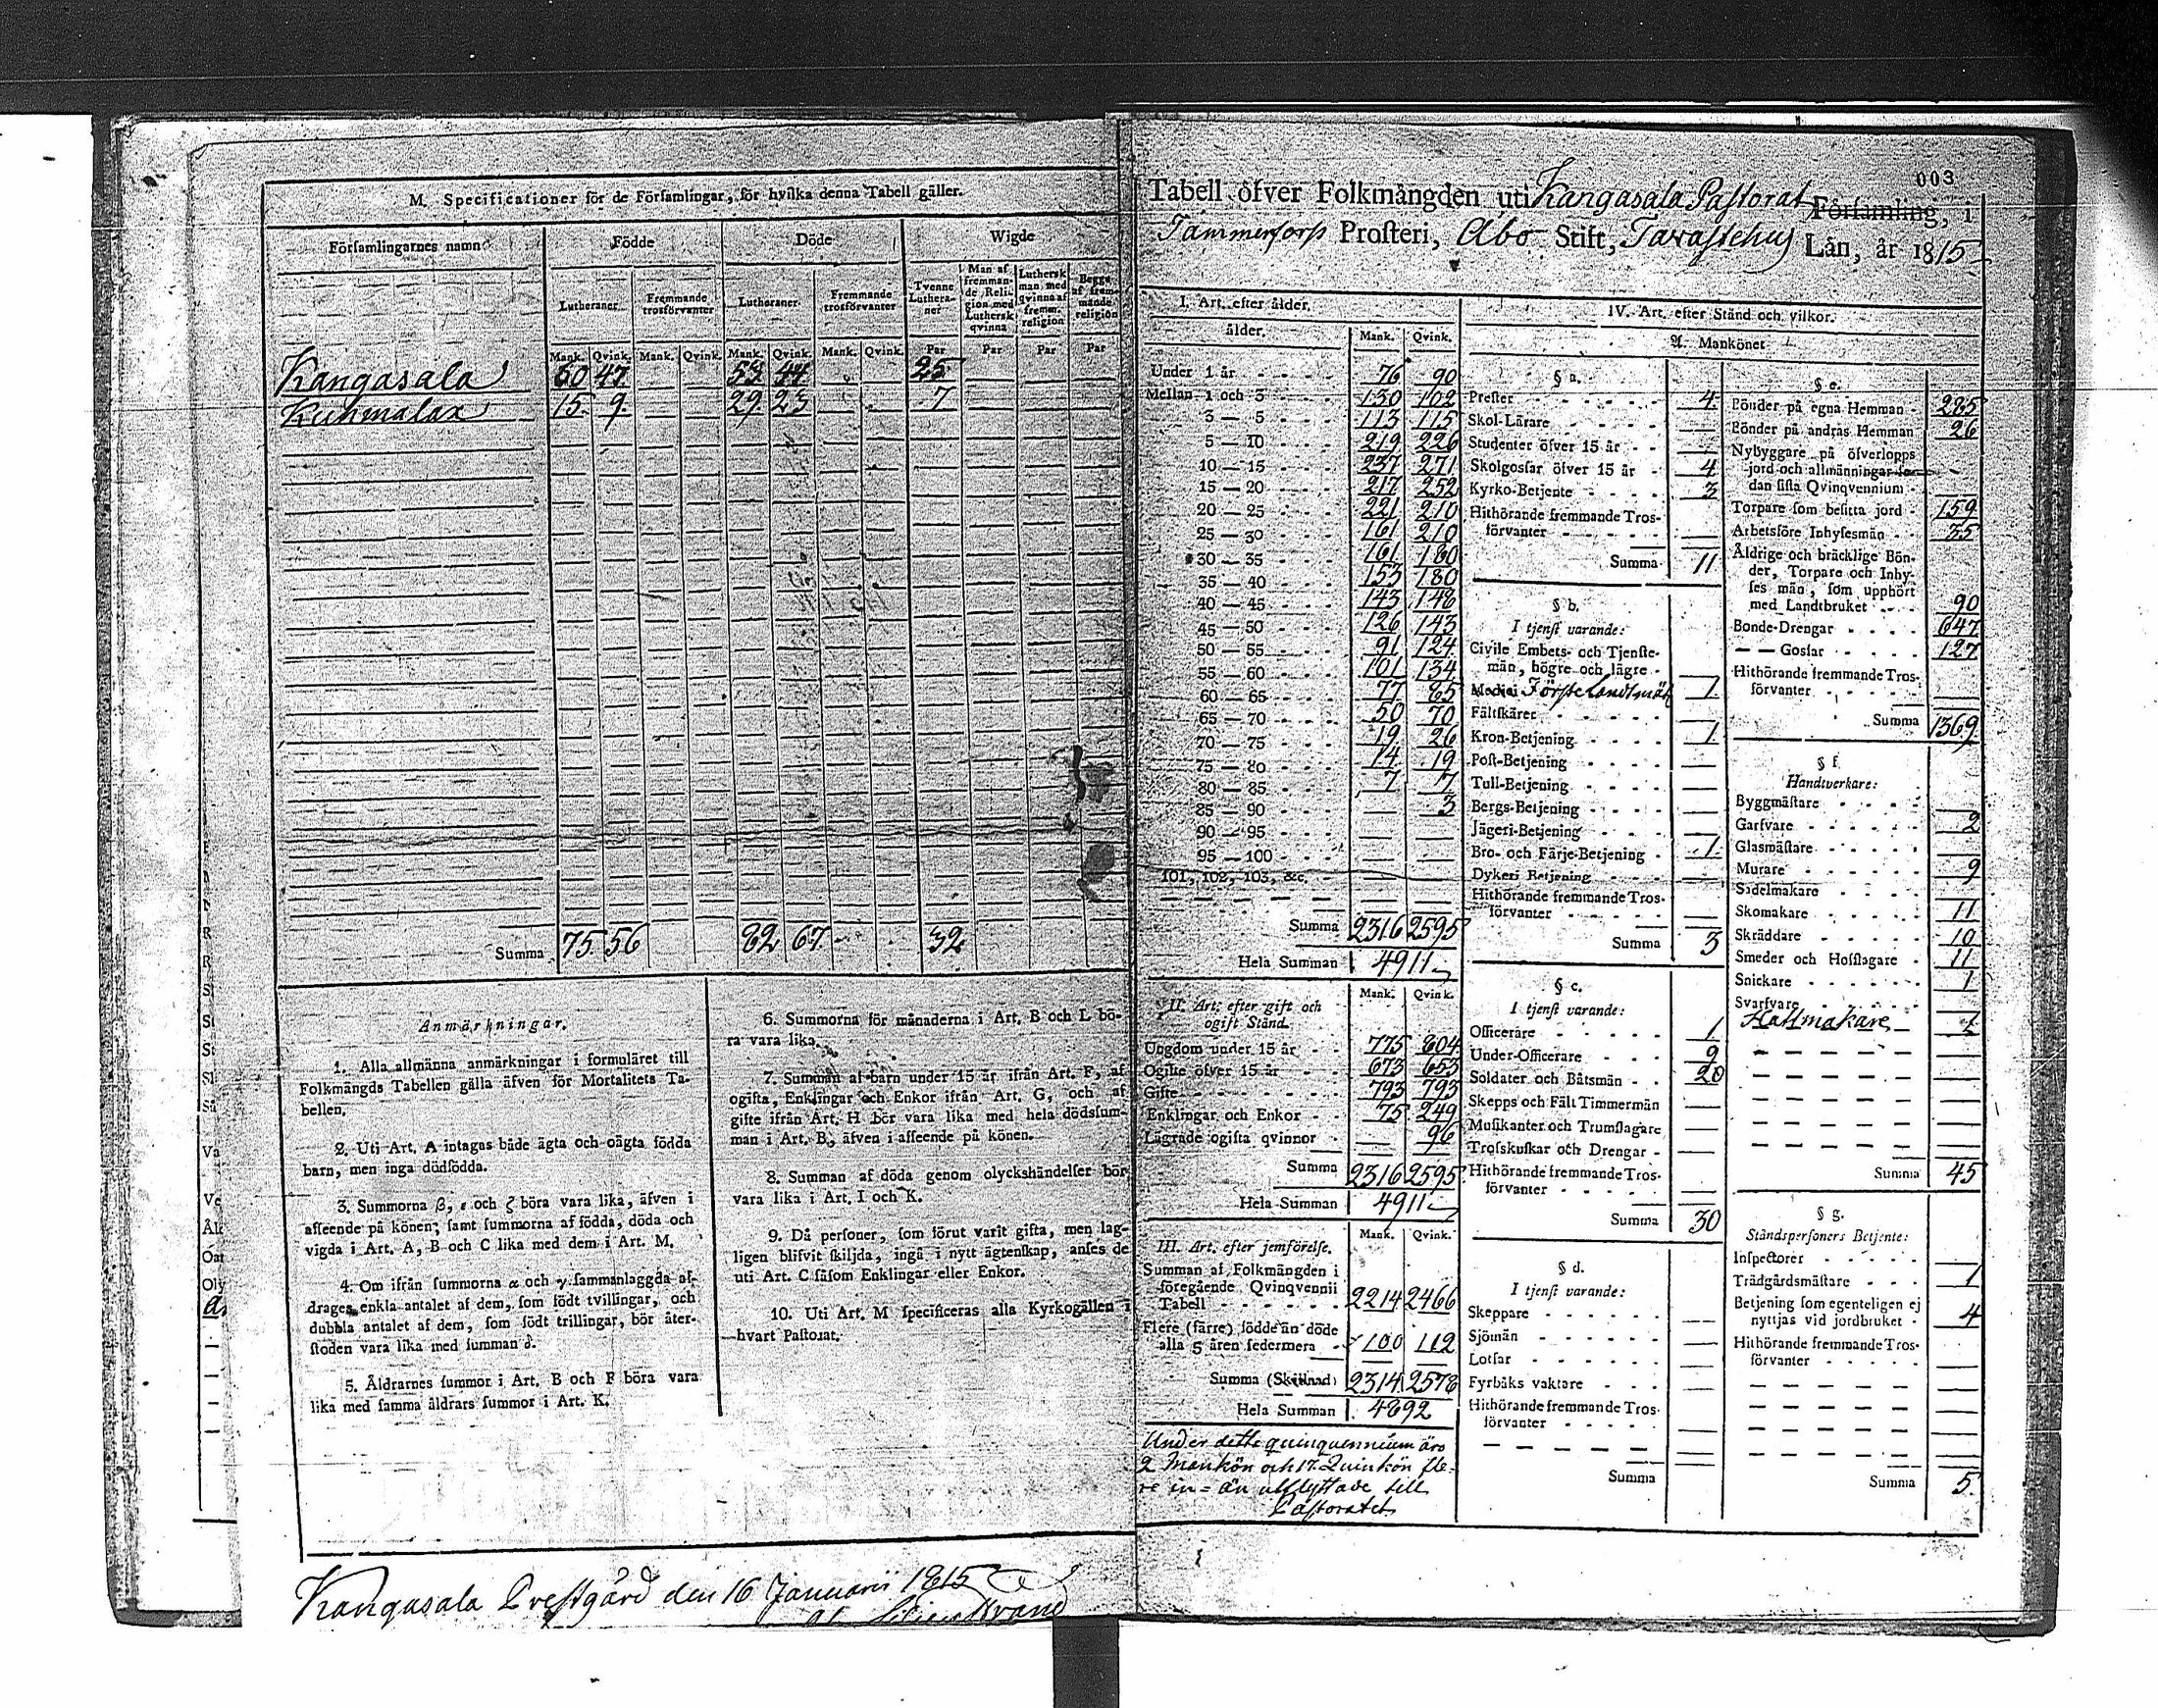 M. Specificationer för de Församlingar, för hvilka denna Tabell gäller.
Församlingarnes namn Födde Döde Wigde
Lutheraner Fremmande trosförvanter Lutheraner Fremmande trosförvanter Tvenne Lutheraner Man af fremmande Religion med Luthersk qvinna Luthersk man med qvinna af fremm. religion Begge af fremmande religion
Mank. Qvink. Mank. Qvink. Mank. Qvink. Mank. Qvink. Par Par Par Par
Kangasala 60 47 53 44 25
Kuhmalax 15 9 29 23 7
Summa 75 56 82 67 32
Anmärkningar.
1. Alla allmänna anmärkningar i formuläret till
Folkmängds Tabellen gälla äfven för Mortalitets Ta-
bellen.
2. Uti Art. A intagas både ägta och oägta födda
barn, men inga dödfödda.
3. Summorna β, ε och ζ böra vara lika, äfven i
afseende på könen; samt summorna af födda, döda och
vigda i Art. A, B och C lika med dem i Art. M.
4. Om ifrån summorna α och γ sammanlaggda af-
drages enkla antalet af dem, som födt tvillingar, och
dubbla antalet af dem, som födt trillingar, bör åter-
stoden vara lika med summan δ.
5. Åldrarnes summor i Art. B och F böra vara
lika med samma åldrars summor i Art. K.
6. Summorna för månaderna i Art. B och L bö-
ra vara lika.
7. Summan af barn under 15 år ifrån Art. F, af
ogifta, Enklingar och Enkor ifrån Art. G, och af
gifte ifrån Art. H bör vara lika med hela dödssum-
man i Art. B, äfven i afseende på könen.
8. Summan af döda genom olyckshändelser bör
vara lika i Art. I och K.
9. Då personer, som förut varit gifta, men lag-
ligen blifvit skiljda, ingå i nytt ägtenskap, anses de
uti Art. C såsom Enklingar eller Enkor.
10. Uti Art. M specificeras alla Kyrkogällen i
hvart Pastorat.
Kangasala Prestgård den 16 Januarii 1815
003
Tabell öfver Folkmängden uti Kangasala Pastorat Församling, i
Tammerfors Prosteri, Åbo Stift, Tavastehus Län, år 1815
I. Art. efter ålder.
ålder. Mank. Qvink.
Under 1 år 76 90
Mellan 1 och 3 130 102
3 — 5 113 115
5 — 10 219 226
10 — 15 237 271
15 — 20 217 252
20 — 25 221 210
25 — 30 161 210
30 — 35 161 180
35 — 40 153 180
40 — 45 143 148
45 — 50 126 143
50 — 55 91 124
55 — 60 101 134
60 — 65 77 85
65 — 70 50 70
70 — 75 19 26
75 — 80 14 19
80 — 85 7 7
85 — 90 3
90 — 95
95 — 100
101, 102, 103, &c.
Summa 2316 2595
Hela Summan 4911
II. Art. efter gift och
ogift Stånd. Mank. Qvink.
Ungdom under 15 år 775 804
Ogifte öfver 15 år 673 653
Gifte 793 793
Enklingar och Enkor 75 249
Lägrade ogifta qvinnor 96
Summa 2316 2595
Hela Summan 4911
III. Art. efter jemförelse. Mank. Qvink.
Summan af Folkmängden i
föregående Qvinqvennii
Tabell 2214 2466
Flere (färre) födde än döde
alla 5 åren sedermera 100 112
Summa (Skillnad) 2314 2578
Hela Summan 4892
Under dette quinquennium äro
2 Mankön och 17 Quinkön fle-
re in- än utflyttade till
Pastoratet
IV. Art. efter Stånd och vilkor.
A. Mankönet
§ a.
Prester 4
Skol-Lärare
Studenter öfver 15 år
Skolgossar öfver 15 år 4
Kyrko-Betjente 3
Hithörande fremmande Tros-
förvanter
Summa 11
§ b.
I tjenst varande:
Civile Embets- och Tjenste-
män, högre och lägre
Medici Förste Landtmät 1
Fältskärer
Kron-Betjening 1
Post-Betjening
Tull-Betjening
Bergs-Betjening
Jägeri-Betjening
Bro- och Färje-Betjening 1
Dykeri Betjening
Hithörande fremmande Tros-
förvanter
Summa 3
§ c.
I tjenst varande:
Officerare 1
Under-Officerare 9
Soldater och Båtsmän 20
Skepps och Fält Timmermän
Musikanter och Trumslagare
Trosskuskar och Drengar
Hithörande fremmande Tros-
förvanter
Summa 30
§ d.
I tjenst varande:
Skeppare
Sjömän
Lotsar
Fyrbåks vaktare
Hithörande fremmande Tros-
förvanter
Summa
§ e.
Bönder på egna Hemman 285
Bönder på andras Hemman 26
Nybyggare på öfverlopps
jord och allmänningar se-
dan sista Qvinqvennium
Torpare som besitta jord 159
Arbetsföre Inhysesmän 35
Åldrige och bräcklige Bön-
der, Torpare och Inhy-
ses män, som upphört
med Landtbruket 90
Bonde-Drengar 647
— — Gossar 127
Hithörande fremmande Tros-
förvanter
Summa 1369
§ f.
Handtverkare:
Byggmästare
Garfvare 2
Glasmästare
Murare 9
Sadelmakare
Skomakare 11
Skräddare 10
Smeder och Hofslagare 11
Snickare 1
Svarfvare
Hattmakare 1
Summa 45
§ g.
Ståndspersoners Betjente:
Inspectorer
Trädgårdsmästare 1
Betjening som egenteligen ej
nyttjas vid jordbruket 4
Hithörande fremmande Tros-
förvanter
Summa 5